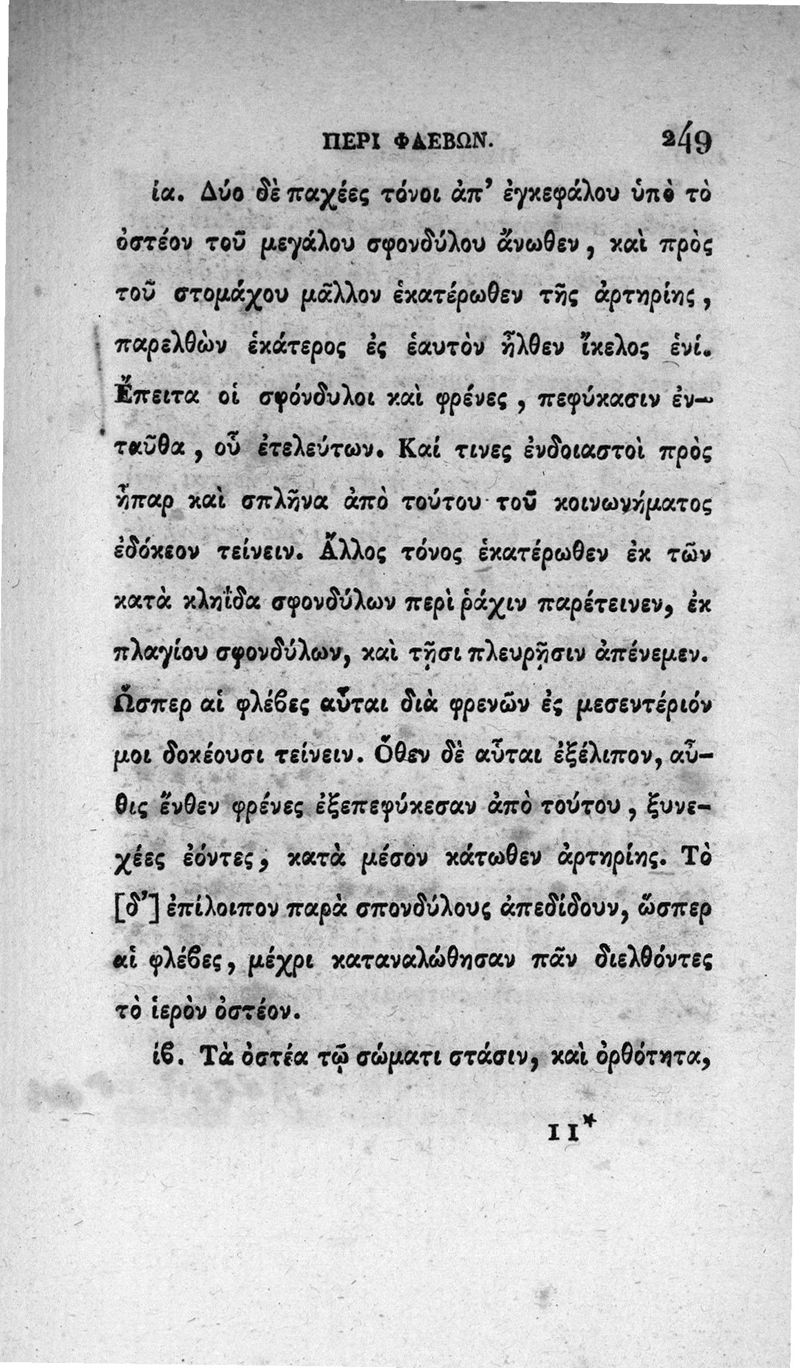 ΠΕΡΙ ΦΛΕΒΩΝ. 249
ία. Δύο δὲ παχέες τόνοι ἀπ’ ἐγκεφάλου ὑπὸ τὸ
ὀστέον τοῦ μεγάλου σφονδύλου ἄνωθεν, καὶ πρὸς
τοῦ στομάχου μᾶλλον ἑκατέρωθεν τῆς ἀρτηρίης,
παρελθὼν ἑκάτερος ἐς ἑαυτὸν ἦλθεν ἴκελος ἑνί.
Ἔπειτα οἱ σφόνδυλοι καὶ φρένες, πεφύκασιν ἐν-
ταῦθα, οὗ ἐτελεύτων. Καί τινες ἐνδοιαστοὶ πρὸς
ἧπαρ καὶ σπλῆνα ἀπὸ τούτου τοῦ κοινωνήματος
ἐδόκεον τείνειν. Ἄλλος τόνος ἑκατέρωθεν ἐκ τῶν
κατὰ κληῖδα σφονδύλων περὶ ῥάχιν παρέτεινεν, ἐκ
πλαγίου σφονδύλων, καὶ τῇσι πλευρῇσιν ἀπένεμεν.
Ὥσπερ αἱ φλέϐες αὗται διὰ φρενῶν ἐς μεσεντέριόν
μοι δοκέουσι τείνειν. Ὅθεν δὲ αὗται ἐξέλιπον, αὖ-
θις ἔνθεν φρένες ἐξεπεφύκεσαν ἀπὸ τούτου, ξυνε-
χέες ἐόντες, κατὰ μέσον κάτωθεν ἀρτηρίης. Τὸ
[δ’] ἐπίλοιπον παρὰ σπονδύλους ἀπεδίδουν, ὥσπερ
αἱ φλέϐες, μέχρι καταναλώθησαν πᾶν διελθόντες
τὸ ἱερὸν ὀστέον.
ίϐ. Τὰ ὀστέα τῷ σώματι στάσιν, καὶ ὀρθότητα,
11*